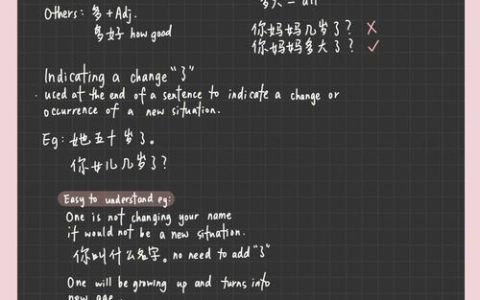 Others: 多 + Adj.
多好 how good
你妈妈几岁了? ✗
你妈妈多大了? ✓
Indicating a change "了"
· used at the end of a sentence to indicate a change or
occurrence of a new situation.
Eg: 她五十岁了。
你女儿几岁了?
Easy to understand eg:
One is not changing your name
it would not be a new situation.
你叫什么名字。 no need to add "了"
One will be growing up and turns into
new age.